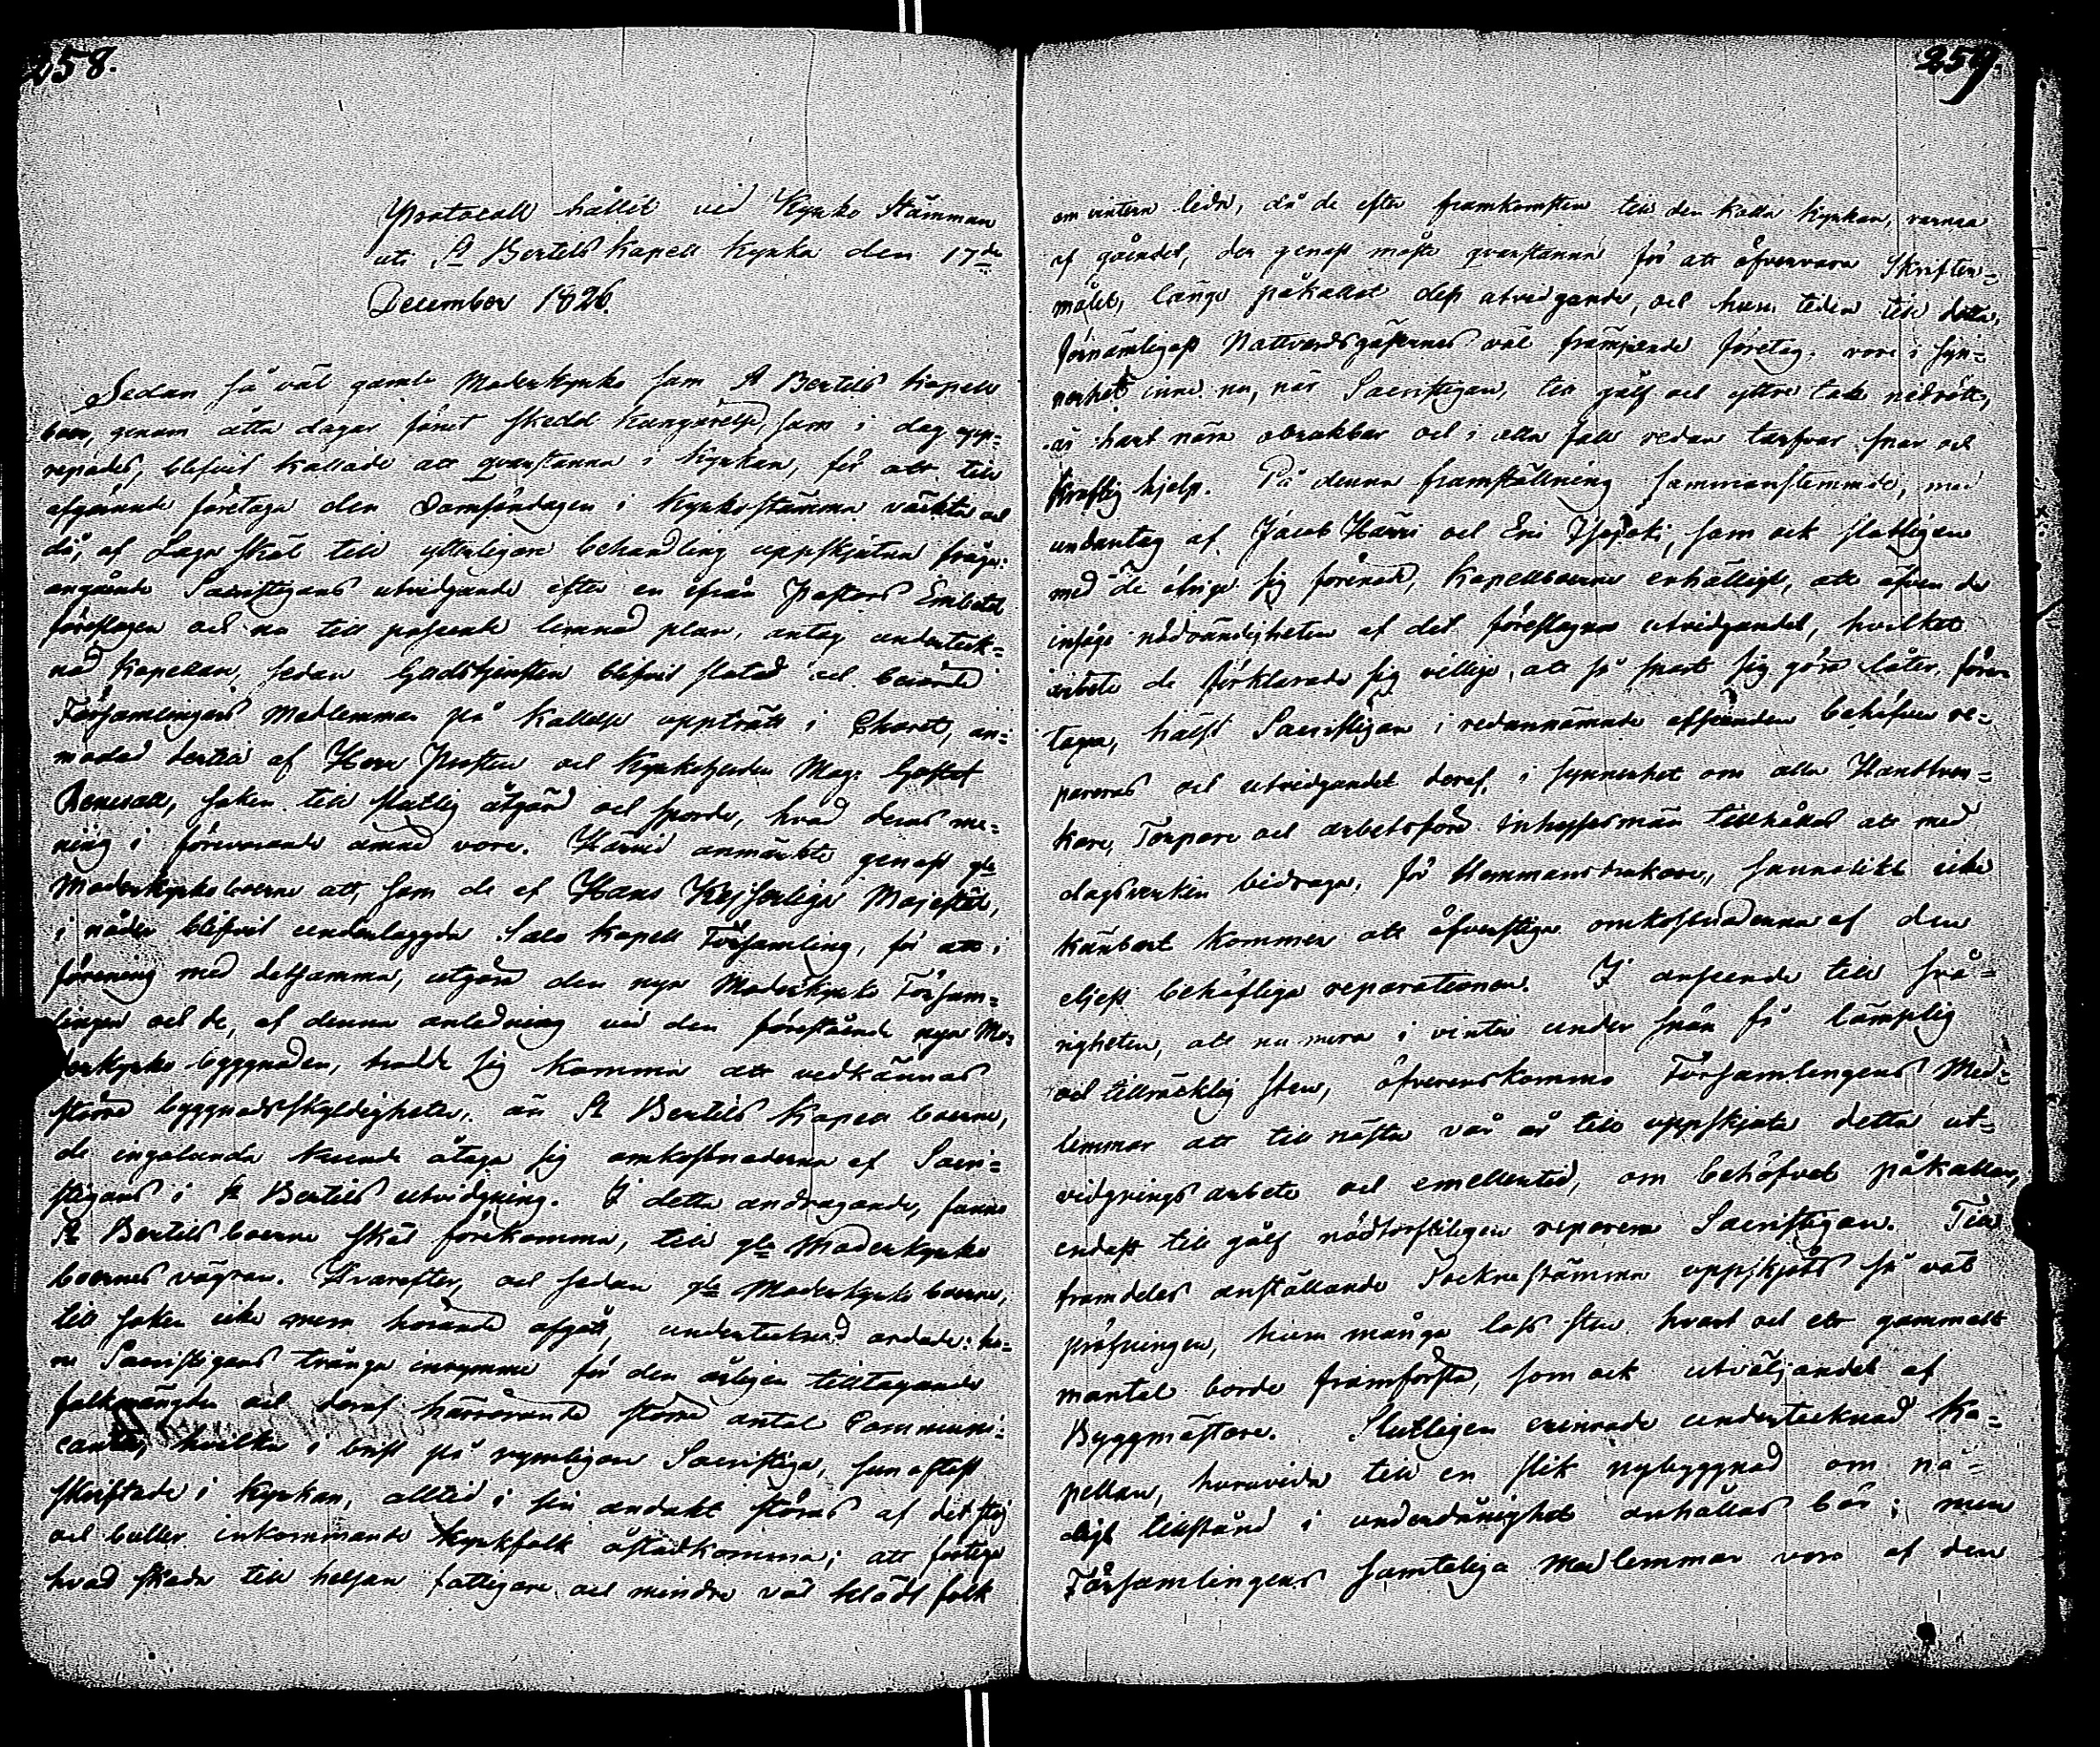 258.
Protocoll hållit vid Kyrko Stämman
uti St Bertils Kapell Kyrka den 17de
December 1826.
Sedan så väl gamla Moderkyrko som St Bertils Kapell
boer, genom åtta dagar förut skedd kungörelse, som i dag upp=
repades, blifvit kallade att qvarstanna i Kyrkan, för att till
afgörande företaga den Domsöndagen i Kyrkostämma väckta och
då, af Laga skäl till ytterligare behandling uppskjutna fråga:
angående Sacristigans utvidgande efter en ifrån Pastors Embetet
föreslagen och nu till påseende lemnad plan, antog underteck=
nad Kapellan, sedan Gudstjensten blifvit slutad och berörde
Församlingars Medlemmar på kallelse uppträdt i Choret, an=
modad dertill af Herr Prosten och Kyrkoherden Mag: Gustaf
Renvall, saken till slutlig åtgärd och sporde, hvad deras me=
ning i förevarande ämne vore. Härvid anmärkte genast gla
Moderkyrkoboerne att, som de af Hans Kejserliga Majestät,
i nåder blifvit underlaggda Salo Kapell Församling, för att i
förening med detsamma, utgöra den nya Moderkyrko Försam=
lingen och de, af denna anledning vid den förestående nya Mo=
derkyrko byggnaden, trodde sig komma att vedkännas
större byggnadsskyldigheter, än St Bertils Kapell boerne,
de ingalunda kunde åtaga sig omkostnaderna af Sacri=
stigans i St Bertils utvidgning. I detta andragande, funno
St Bertils boerne skäl förekomma, till gla Moderkyrko
boernes vägran. Hvarefter, och sedan gla Moderkyrko boerne,
till saken icke mera hörande afgått, undertecknad ordade: hu=
ru Sacristigans trånga inrymme för den årligen tilltagande
folkmängden och deraf härrörande större antal Communi=
canter, hvilka i brist på rymligare Sacristiga, som oftast
skriftade i Kyrkan, alltid i sin andakt störas af det stoj
och buller inkommande Kyrkfolk åstadkomma; att förtiga
hvad skada till helsan fattigare och mindre väl klädt folk
259.
om vintern lida, då de efter framkomsten till den kalla Kyrkan, varma
af gåendet, der genast måste qvarstanna för att öfvervara Skriften=
målet, länge påkallat dess utvidgande, och huru tiden till detta,
förnämligast Nattvardsgästernas väl främjande företag, vore i syn=
nerhet inne nu, när Sacristigan, till golf och yttre tak nedrött,
är hart nära obrukbar och i alla fall redan tarfvar snar och
kraftig hjelp. På denna framställning sammanstemmde, med
undantag af Jacob Härri och Eric Isojoki, som ock slutligen
med de öfriga sig förenade, Kapellboerne enhälligt, att äfven de
insågo nödvändigheten af det föreslagna utvidgandet, hvilket
arbete de förklarade sig villige, att så snart sig göra låter, före=
taga, hälst Sacristigan i redannämnde afseenden behöfver re=
pareras och utvidgandet deraf, i synnerhet om alla Handtver=
kare, Torpare och arbetsföre Inhysesmän tillhållas att med
dagsverken bidraga, för Hemmansbrukare, sannolikt icke
kännbart kommer att öfverstiga omkostnaderna af den
eljest behöfliga reparationen. I anseende till svå=
righeten, att nu mera i vinter under snön få lämplig
och tillräcklig sten, öfverenskommo Församlingens Med=
lemmar att till nästa vår år till uppskjuta detta ut=
vidgnings arbete och emellertid, om behofvet påkallar,
endast till golf nödtorfteligen reparera Sacristigan. Till
framdeles anställande Sockne stämma uppskjöts så väl
pröfningen, huru många lass sten hvart och ett gammalt
mantal borde framforsla, som ock utväljandet af
Byggmästare. Slutligen erinrade undertecknad Ka=
pellan, huruvida till en slik nybyggnad om nå=
digt tillstånd i underdånighet anhållas bör; men
Församlingens samteliga Medlemmar voro af den